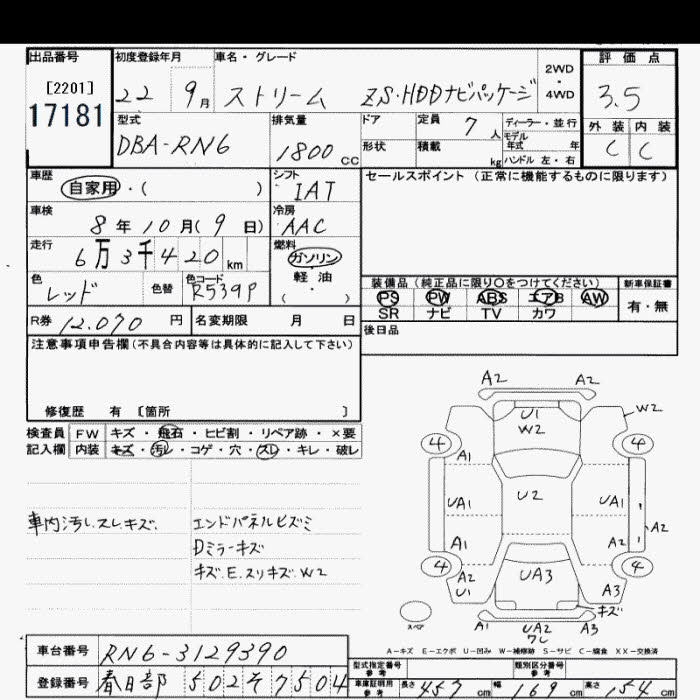 出品番号 初度登録年月 車名・グレード 2WD・4WD 評価点
[2201] 17181 22 9月 ストリーム ZS・HDDナビパッケージ 3.5
型式 排気量 ドア 定員 7人 ディーラー・並行 外装 内装
DBA-RN6 1800cc 形状 積載 kg モデル年式 年 ハンドル 左・右 C C
車歴 シフト セールスポイント(正常に機能するものに限ります)
自家用・( ) IAT
車検 冷房
8年10月(9日) AAC
走行 燃料
6万3千420km ガソリン
色 色替 色コード 軽・油
レッド R539P ( ・ )
装備品(純正品に限り○をつけてください) 新車保証書
PS PW ABS エアB AW 有・無
SR ナビ TV カワ
R券 12,070円 名変期限 月 日 後日品
注意事項申告欄(不具合内容等は具体的に記入して下さい)
修復歴 有 〔箇所 〕
検査員 FW キズ・飛石・ヒビ割・リペア跡・×要
記入欄 内装 キズ・汚レ・コゲ・穴・スレ・キレ・破レ
車内汚レ.スレ.キズ. エンドパネルヒズミ
Dミラーキズ
キズ.E.スリキズ.W2
A2 A2
U1 W2 W2
4 4
A1
UA1 U2 UA1
A2
A1 A2
4 4
A2 U1 UA3 A3
キズ
スペア A1 UA2 A3
A-キズ E-エクボ U-凹み W-補修跡 S-サビ C-腐食 XX-交換済
車台番号 RN6-3129390
登録番号 春日部 502 そ 7504
型式指定番号 参考 類別区分番号 参考
車庫証明用 参考 長さ 457cm 幅 169cm 高さ 154cm